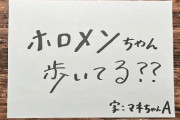 ホロメンちゃん
歩いてる??
字:マネちゃんA